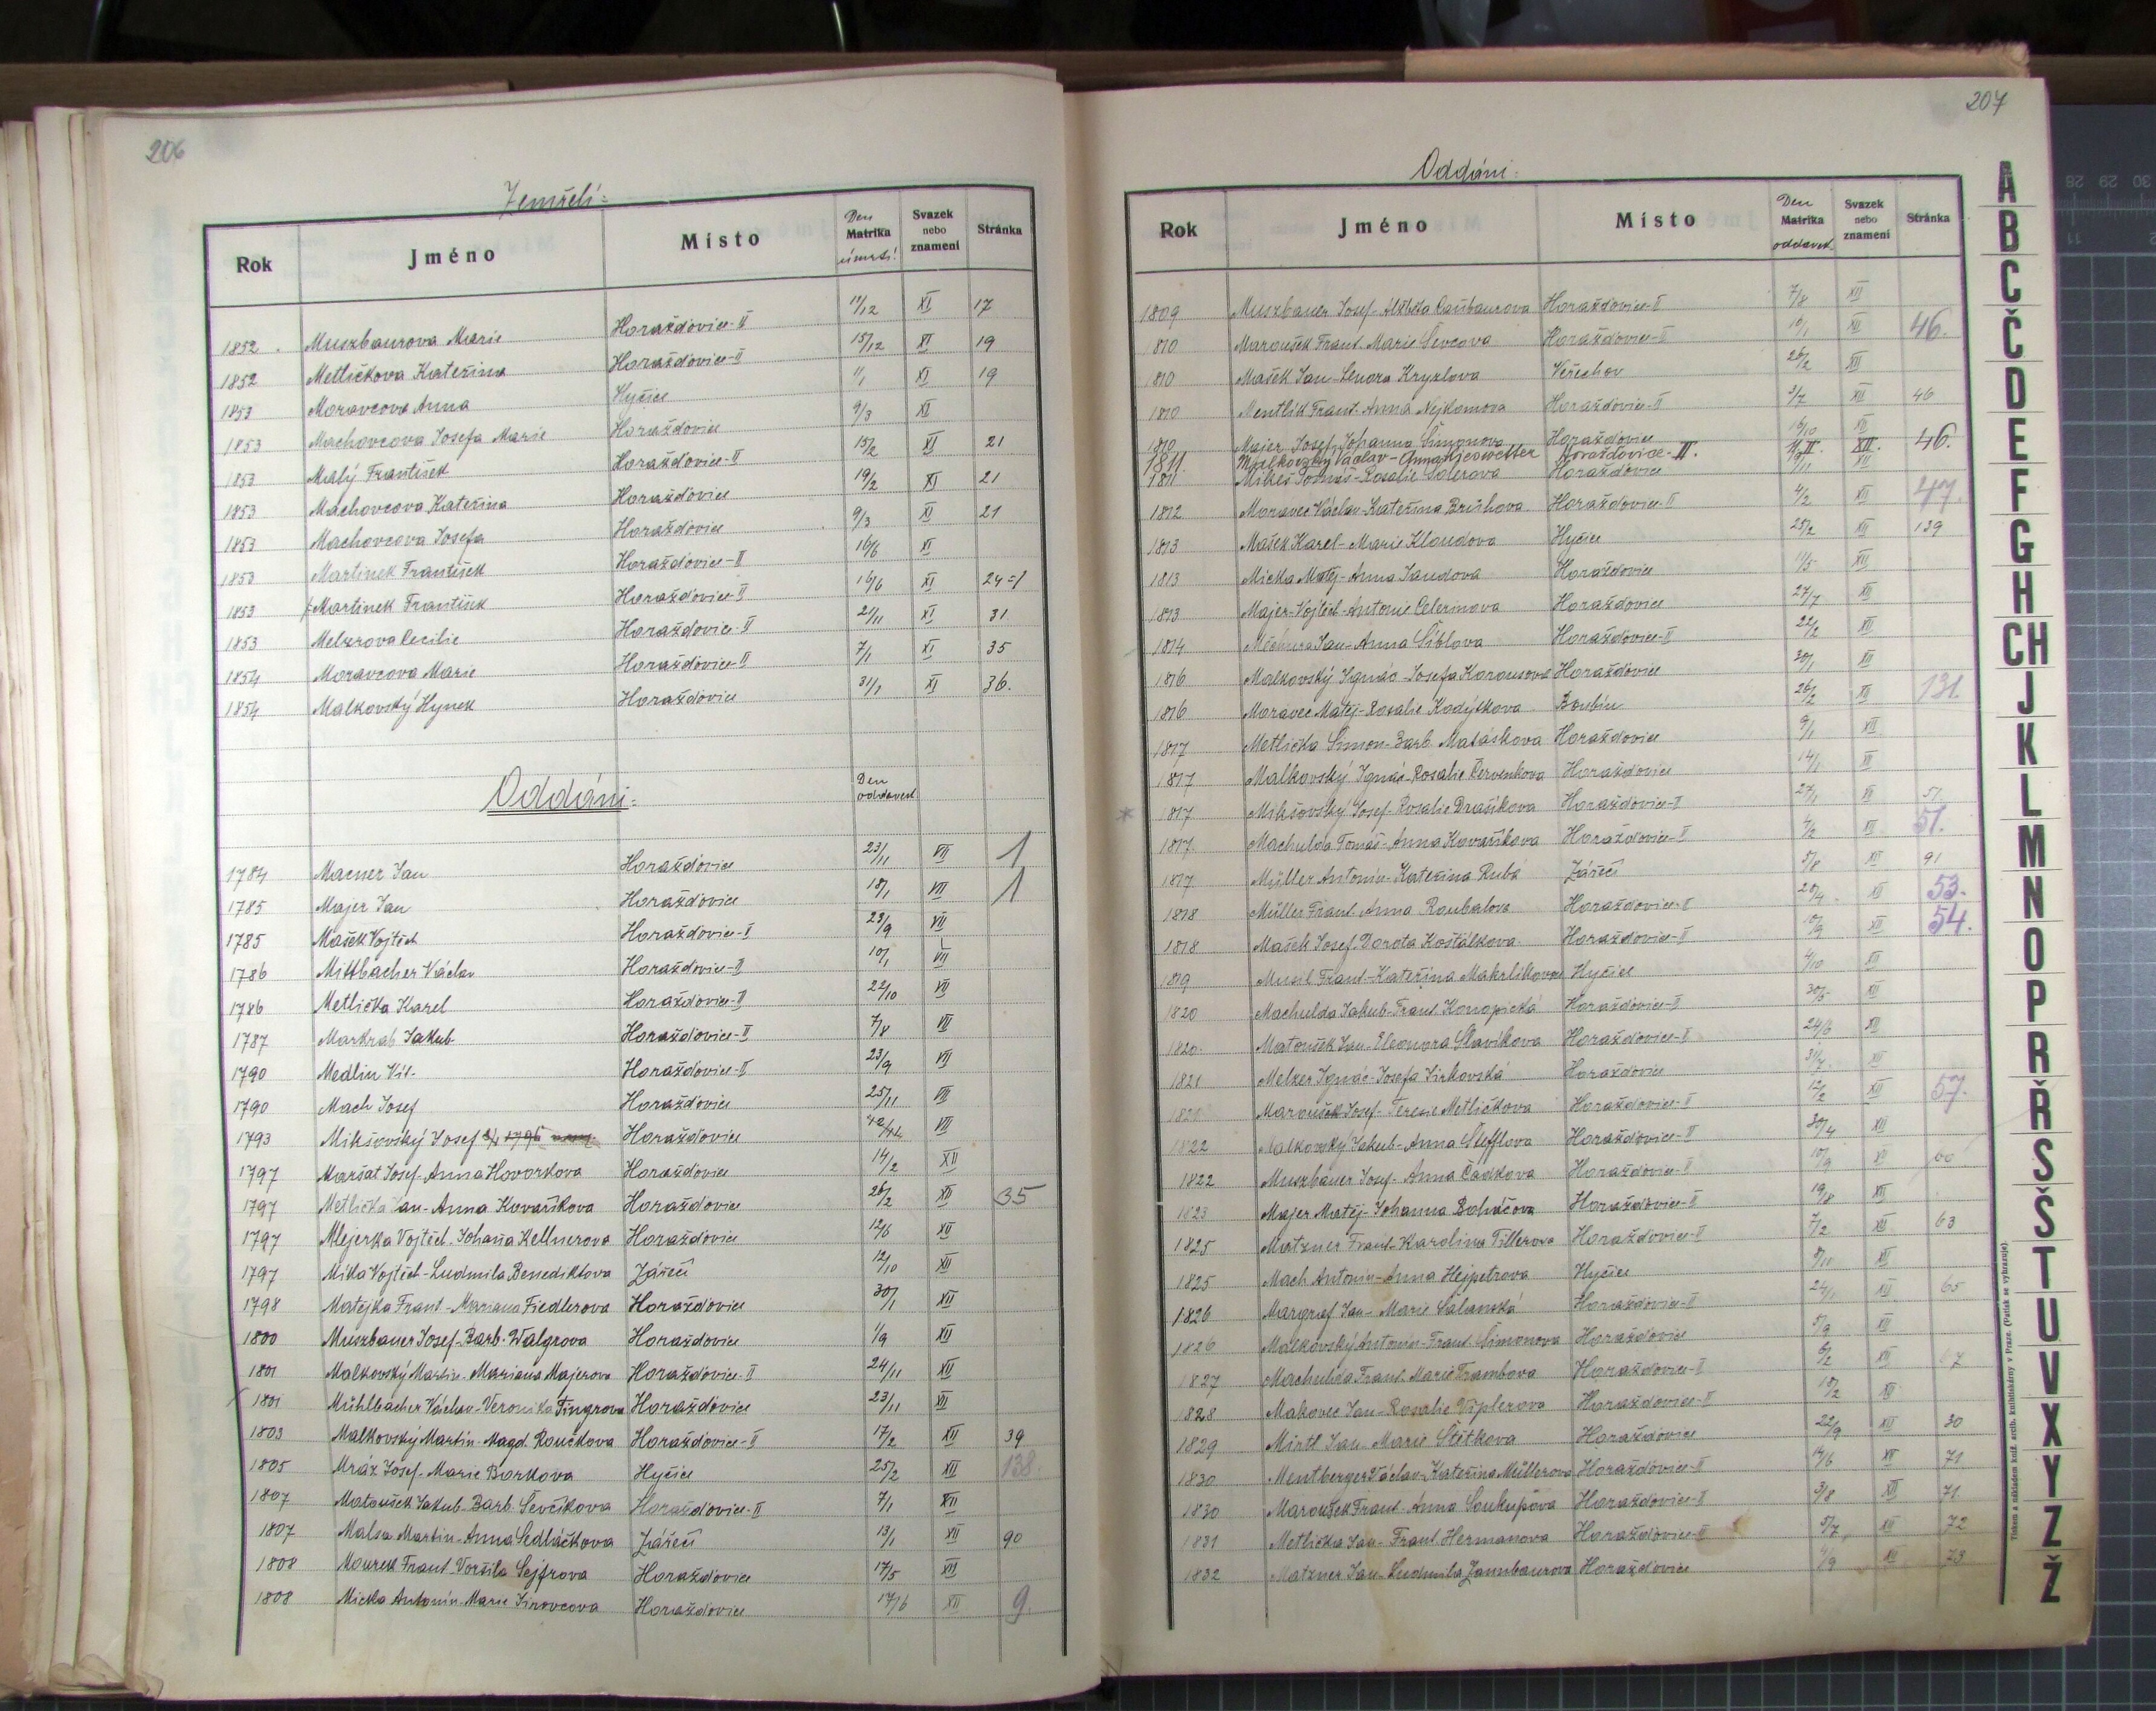 206
Zemřelí:
Rok Jméno Místo Den Matrika úmrtí Svazek nebo znamení Stránka
1852 Muszbaurova Marie Horažďovice-II 11/12 XI 17
1852 Metličkova Kateřina Horažďovice-II 15/12 XI 19
1853 Moravcova Anna Hyčice 1/1 XI 19
1853 Machovcova Josefa Marie Horažďovice 9/3 XI
1853 Malý František Horažďovice-II 15/2 XI 21
1853 Machovcova Kateřina Horažďovice 19/2 XI 21
1853 Machovcova Josefa Horažďovice 9/3 XI 21
1853 Martinek František Horažďovice-II 16/6 XI
1853 Martinek František Horažďovice-II 16/6 XI 24
1853 Melzrova Cecilie Horažďovice-II 21/11 XI 31
1854 Moravcova Marie Horažďovice-II 7/1 XI 35
1854 Malkovský Hynek Horažďovice 31/1 XI 36.
Oddáni: Den oddavek
1784 Macner Jan Horažďovice 23/11 VII 1
1785 Majer Jan Horažďovice 18/1 VII 1
1785 Mašek Vojtěch Horažďovice-I 23/9 VII
1786 Mittbacher Václav Horažďovice-II 10/1 VII
1786 Metlička Karel Horažďovice-II 22/10 VII
1787 Markrab Jakub Horažďovice-II 7/8 VII
1790 Medlin Vít Horažďovice-II 23/9 VII
1790 Mach Josef Horažďovice 25/11 VII
1793 Mikšovský Josef Horažďovice VII
1797 Maršat Josef-Anna Hovorkova Horažďovice 14/2 XII
1797 Metlička Jan-Anna Kovaříkova Horažďovice 26/2 XII 35
1797 Mlejerka Vojtěch-Johana Kellnerova Horažďovice 12/6 XII
1797 Mička Vojtěch-Ludmila Benediktova Zářečí 12/10 XII
1798 Matějka Frant-Mariana Fiedlerova Horažďovice 30/1 XII
1800 Muszbauer Josef-Barb. Walgrova Horažďovice 1/9 XII
1801 Malkovský Martin-Mariana Majerova Horažďovice-II 24/11 XII
1801 Mühlbacher Václav-Veronika Fingrova Horažďovice 23/11 XII
1803 Malkovský Martin-Magd. Roučkova Horažďovice-II 17/2 XII 39
1805 Mráz Josef-Marie Borkova Hyčice 25/2 XII 138.
1807 Matoušek Jakub-Barb. Ševčíkova Horažďovice-II 7/1 XII
1807 Malsa Martin-Anna Sedláčkova Zářečí 13/1 XII 90
1808 Mourek Frant Voršila Sejfrova Horažďovice 17/5 XII
1808 Micka Antonín-Marie Jirovcova Horažďovice 17/6 XII 9.
207
Oddáni:
Rok Jméno Místo Den Matrika oddavek Svazek nebo znamení Stránka
1809 Muszbauer Josef-Alžběta Horažďovice-II 7/8 XII
1810 Maroušek Frant. Marie Ševcova Horažďovice-II 16/1 XII 46.
1810 Mašek Jan-Lenora Kryzlova Veřechov 26/2 XII
1810 Mentlik Frant-Anna Nejkomova Horažďovice-II 3/7 XII 46
1810 Majer Josef-Johanna Šimonova Horažďovice 16/10 XII
1811. Václav- Horažďovice-II. XII. 46.
1811 Mikeš Tomáš-Rosalie Solerova Horažďovice XII
1812 Moravec Václav-Kateřina Brůhova Horažďovice-II 4/2 XII 47.
1813 Mašek Karel-Marie Kloudova Hyčice 25/2 XII 139
1813 Micka Matěj-Anna Jandova Horažďovice 11/5 XII
1813 Majer-Vojtěch-Antonie Celerinova Horažďovice 27/7 XII
1814 Měchura Jan-Anna Šiblova Horažďovice-II 22/2 XII
1816 Malkovský Ignác-Josefa Karousova Horažďovice 30/1 XII
1816 Moravec Matěj-Rosalie Kodýtkova Boubín 26/2 XII 131.
1817 Metlička Šimon-Barb. Matáskova Horažďovice 9/1 XII
1817 Malkovský Ignác-Rosalie Červenkova Horažďovice 14/1 XII
1817 Mikšovský Josef-Rosalie Drašíkova Horažďovice-II 27/1 XII 51.
1817. Machulda Tomáš-Anna Kovaříkova Horažďovice-II 4/2 XII 51.
1817. Müller Antonín-Kateřina Rubá Zářečí 5/8 XII 91
1818 Müller Frant-Anna Roubalova Horažďovice-II 20/4 XII 53.
1818 Mašek Josef-Dorota Košťálkova Horažďovice-II 10/9 XII 54.
1819 Musil Frant-Kateřina Makrlikova Hyčice 4/10 XII
1820 Machulda Jakub-Frant Konopická Horažďovice-II 30/5 XII
1820 Matoušek Jan-Eleonora Slavíkova Horažďovice-II 24/6 XII
1821 Melzer Ignác-Josefa Jirkovská Horažďovice 31/7 XII
1821 Maroušek Josef-Terezie Metličkova Horažďovice-II 12/2 XII 57.
1822 Malkovský Jakub-Anna Štefflova Horažďovice-II 30/4 XII
1822 Muszbauer Josef-Anna Čadkova Horažďovice-II 10/9 XII 60
1823 Majer Matěj-Johanna Boháčova Horažďovice-II 19/8 XII
1825 Matzner Frant-Karolina Tillerova Horažďovice-II 7/2 XII 63
1825 Mach Antonín-Anna Hejpetrova Hyčice 8/11 XII
1826 Margraf Jan-Marie Salanská Horažďovice-II 24/1 XII 65
1826 Malkovský Antonín-Frant Šimonova Horažďovice 5/9 XII
1827 Machulda Frant. Marie Trambova Horažďovice-II 6/2 XII 67
1828 Makovec Jan-Rosalie Viplerova Horažďovice-II 18/2 XII
1829 Mirtl Jan-Marie Štětkova Horažďovice 22/9 XII 30
1830 Mentberger Václav-Kateřina Müllerova Horažďovice-II 14/6 XII 71
1830 Maroušek Frant-Anna Soukupova Horažďovice-II 9/8 XII 71
1831 Metlička Jan-Frant Hermanova Horažďovice-II 5/7 XII 72
1832 Matzner Jan-Ludmila Jannbaurova Horažďovice 4/9 XII 73
A
B
C
Č
D
E
F
G
H
CH
J
K
L
M
N
O
P
R
Ř
S
Š
T
U
V
X
Y
Z
Ž